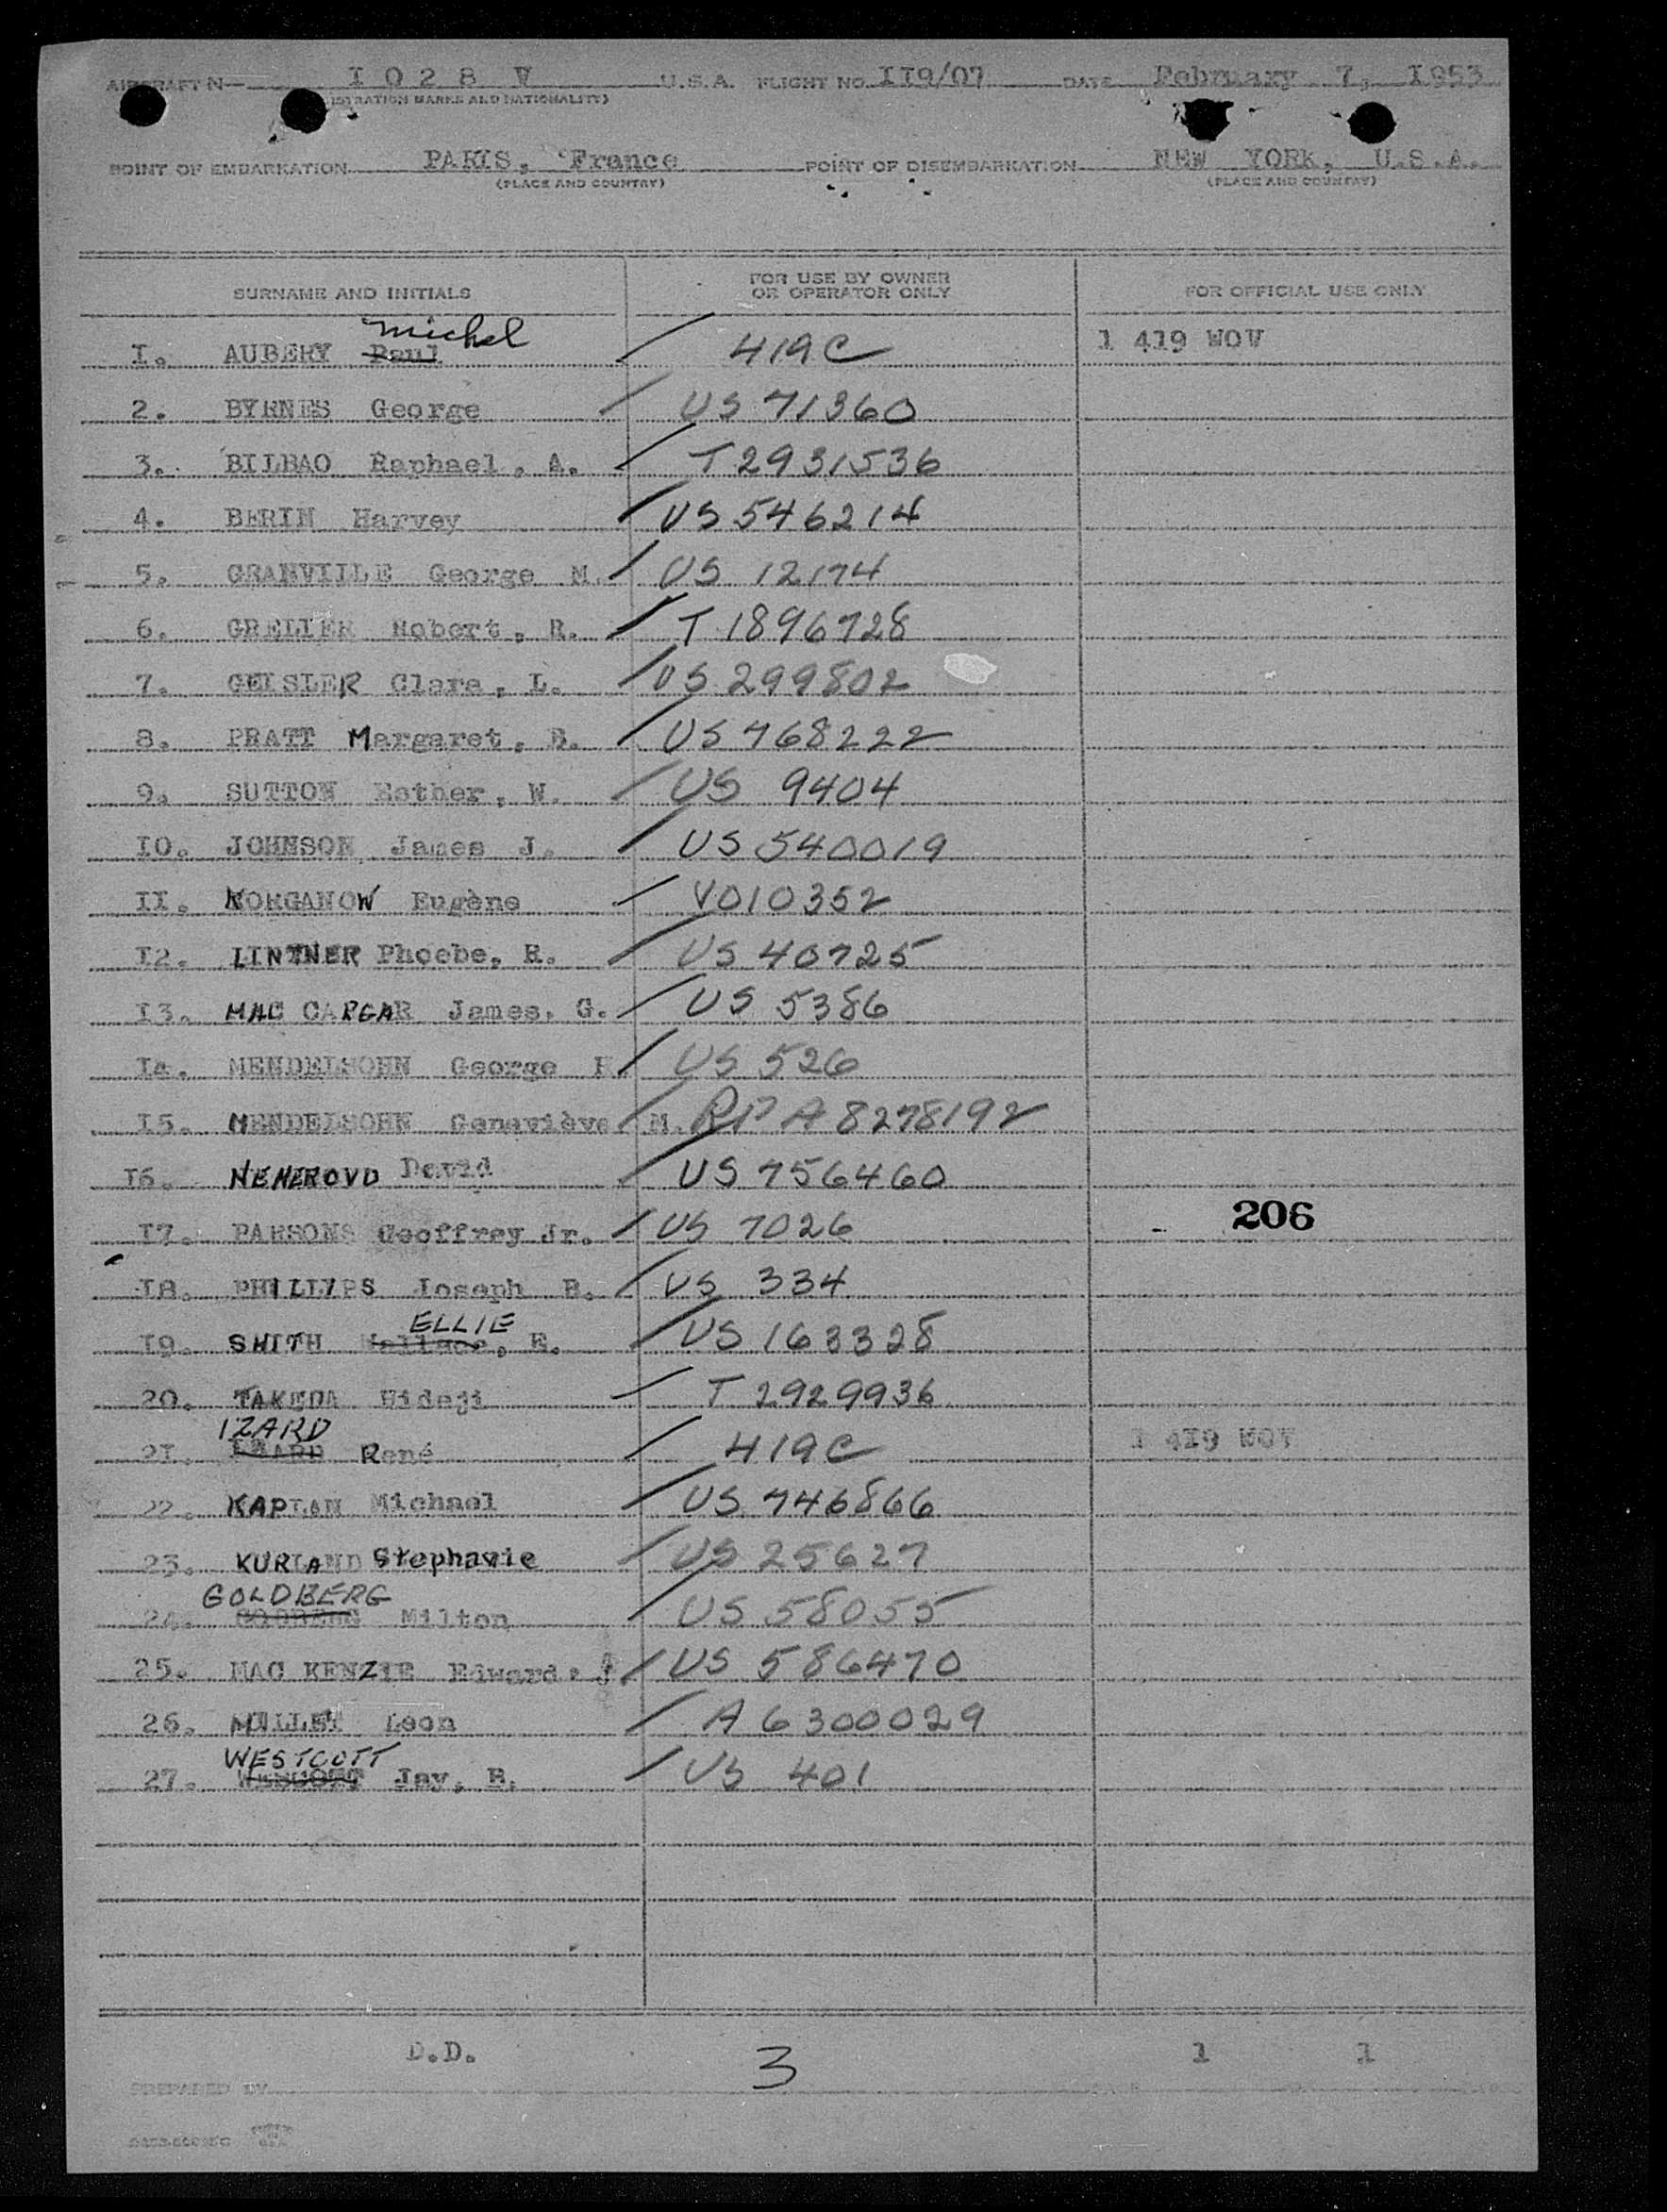 AIRCRAFT N— I 0 2 8 V U.S.A. FLIGHT NO. II9/07 DATE February 7, I953
(REGISTRATION MARKS AND NATIONALITY)
POINT OF EMBARKATION PARIS, France POINT OF DISEMBARKATION NEW YORK, U.S.A.
(PLACE AND COUNTRY) (PLACE AND COUNTRY)
SURNAME AND INITIALS FOR USE BY OWNER OR OPERATOR ONLY FOR OFFICIAL USE ONLY
michel
I. AUBERY Paul / 419C 1 419 WOV
2. BYRNES George / US 71360
3. BILBAO Raphael, A. / T2931536
4. BERIN Harvey / US 546214
5. GRANVILLE George M. / US 12174
6. GRELIER Robert, R. / T 1896728
7. GEISLER Clara, L. / US 299802
8. PRATT Margaret, B. / US 768222
9. SUTTON Esther, W. / US 9404
IO. JOHNSON James J. / US 540019
II. KORGANOW Eugène / V010352
I2. LINTNER Phoebe, R. / US 40725
I3. MAC CARGAR James, G. / US 5386
I4. MENDELSOHN George / US 526
I5. MENDELSOHN Geneviève M. / RP A8278192
I6. NEMEROVD David / US 756460
206
I7. PARSONS Geoffrey Jr. / US 7026
I8. PHILLIPS Joseph B. / US 334
ELLIE
I9. SMITH Wallace, E. / US 163328
20. TAKEDA Hideji / T 2929936
IZARD
2I. René / 419C 1 419 WOV
22. KAPLAN Michael / US 746866
23. KURLAND Stephanie / US 25627
GOLDBERG
24. Milton / US 58055
25. MAC KENZIE Edward, / US 586470
26. MILLET Leon / A 6300029
WESTCOTT
27. Jay, B. / US 401
D.D. 3 1 1
PREPARED BY